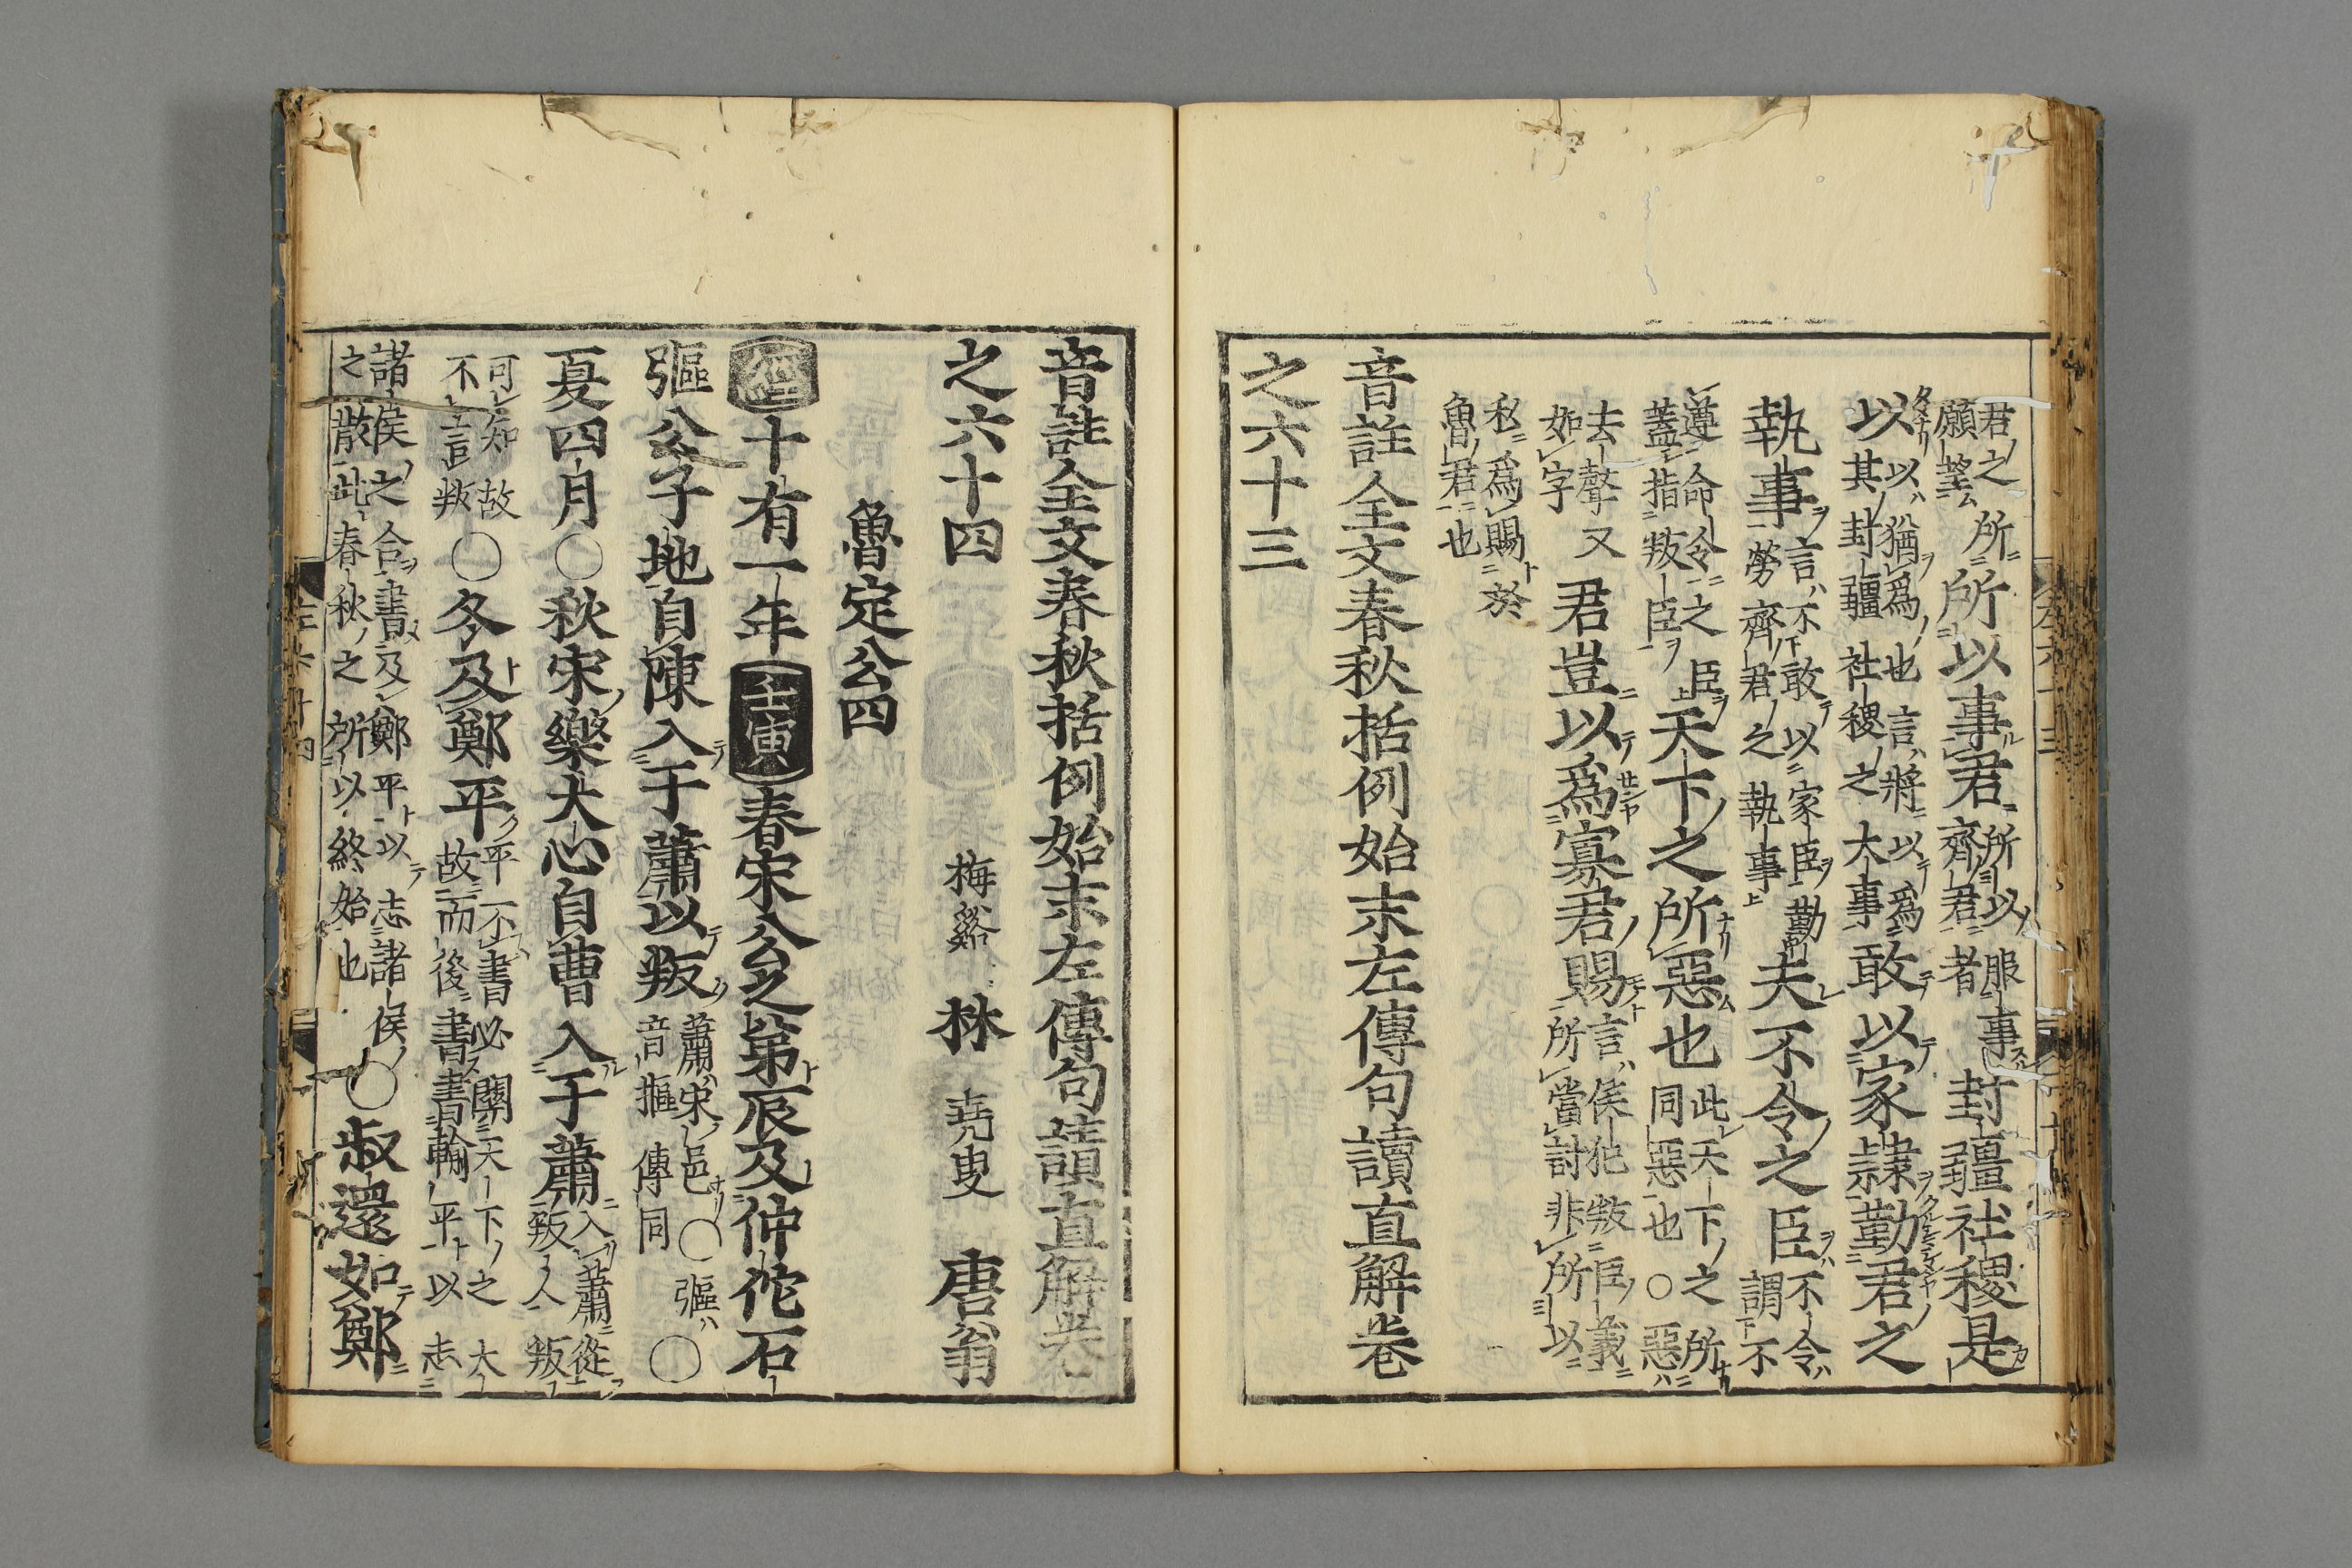 君之所願望所以事君所以服事齊君者封疆社稷是
以以猶爲也言將以爲以其封疆社稷之大事敢以家隷勤君之
執事言不敢以家臣勤勞齊君之執事夫不令之臣不令謂不
遵命令之臣蓋指叛臣天下之所惡也此天下之所同惡也○惡
去聲又如字君豈以爲寡君賜言侯犯叛臣義所當討非所以
私爲賜於魯君也
音註全文春秋括例始末左傳句讀直解卷
之六十三
音註全文春秋括例始末左傳句讀直解卷
之六十四 梅谿 林 堯叟 唐翁
魯定公四
經十有一年壬寅春宋公之弟辰及仲佗石
彄公子地自陳入于蕭以叛蕭宋邑○彄音摳傳同○
夏四月○秋宋樂大心自曹入于蕭入蕭從叛人叛
可知故不言叛○冬及鄭平平不書必關天下之大故而後書書輸平以志
諸侯之合書及鄭平以志諸侯之散此春秋之所以終始也○叔還如鄭
左六十四